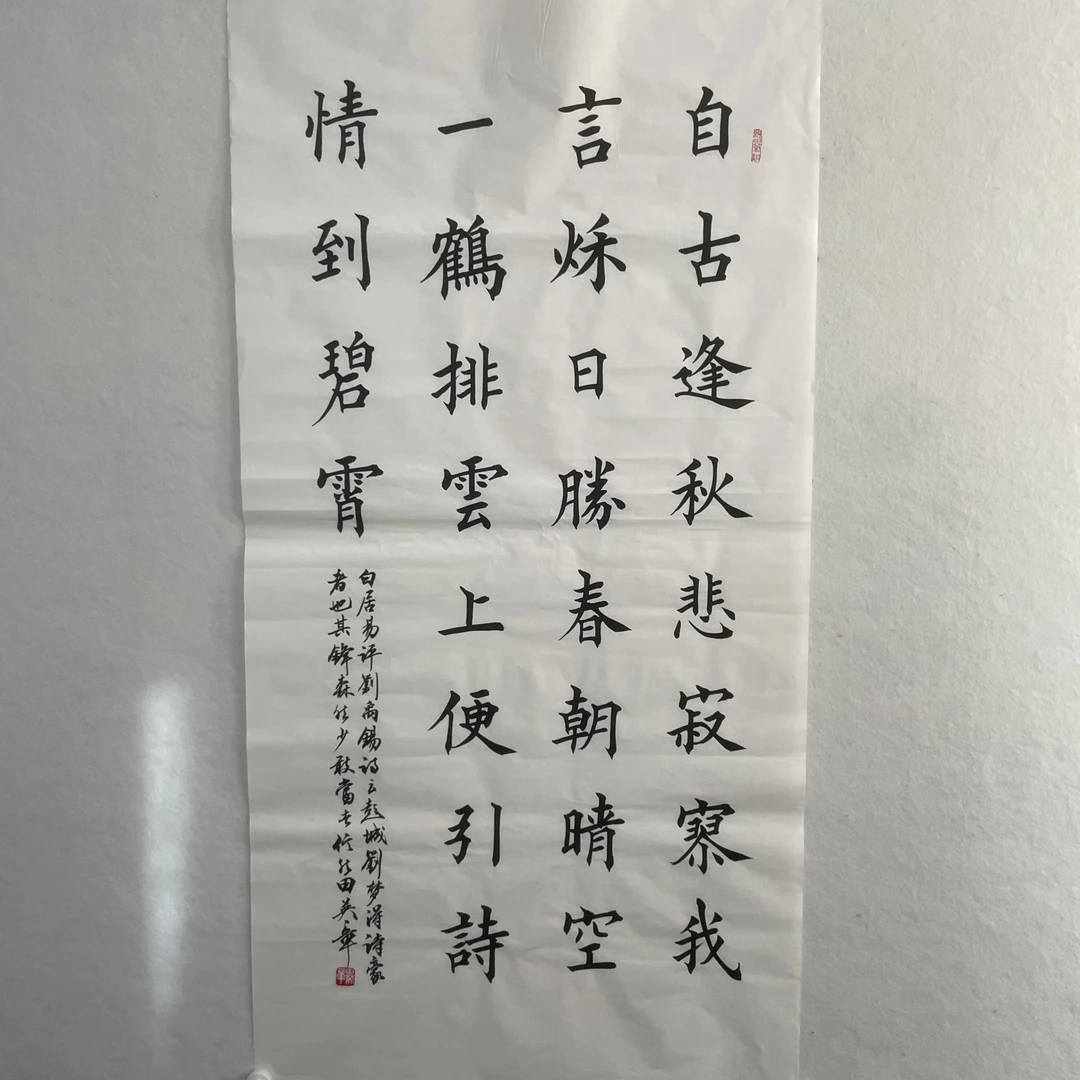 自古逢秋悲寂寥我
言秌日勝春朝晴空
一鶴排雲上便引詩
情到碧霄
白居易评劉禹錫诗云彭城劉梦得诗豪
者也其鋒森然少敢當者信然田英章